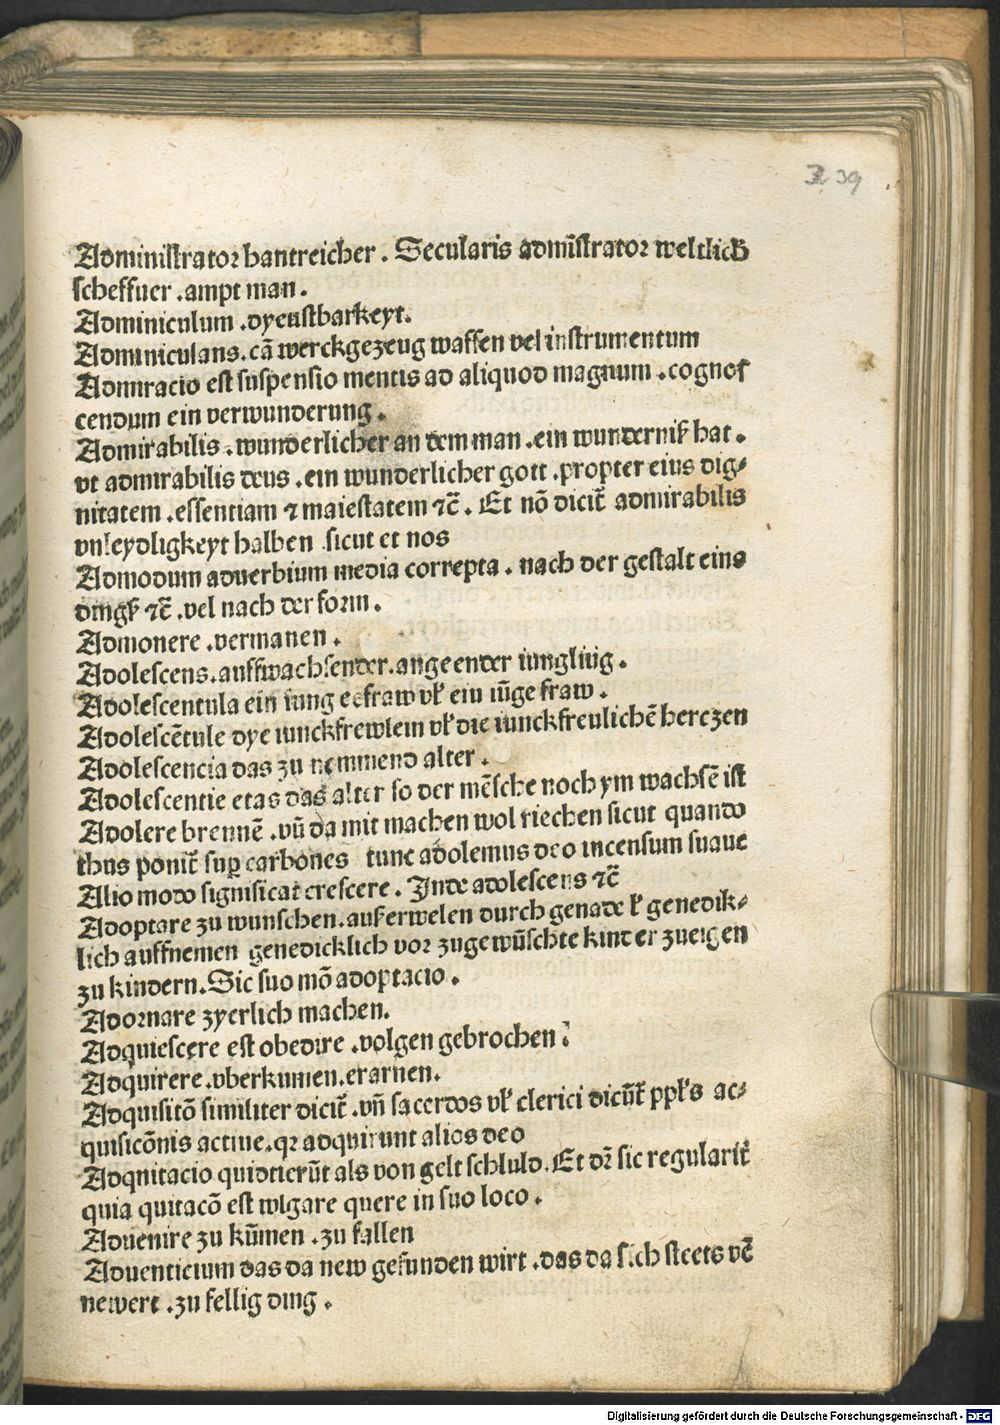 3 39
Administrator hantreicher . Secularis admĩstrator weltlich
scheffuer .ampt man .
Adminiculum .dyenstbarkeyt.
Adminiculans. cã werckgezeug waffen vel instrumentum
Admiracio est suspensio mentis ad aliquod magnum .cognos
cendum ein verwunderung .
Admirabilis .wunderlicher an dem man .ein wunderniß hat .
vt admirabilis deus .ein wunderlicher gott .propter eius dig⸗
nitatem .essentiam ⁊ maiestatem ⁊c̃ . Et nõ dicit̃ admirabilis
vnleydligkeyt halben sicut et nos
Admodum aduerbium media correpta . nach der gestalt eins
dingß ⁊c̃ .vel nach der form .
Admonere .vermanen .
Adolescens.auffwachsender.angeender iungling .
Adolescentula ein iung eefraw vł ein iũge fraw .
Adolescẽtule dye iunckfrewlein vł die iunckfreulichẽ herczen
Adolescencia das zu nemmend alter .
Adolescentie etas das alter so der mẽsche noch ym wachsẽ ist
Adolere brennẽ .vñ da mit machen wol riechen sicut quando
thus ponit̃ suꝑ carbones tunc adolemus deo incensum suaue
Alio modo significat crescere . Inde adolescens ⁊c̃
Adoptare zu wunschen.außerwelen durch genade ł genedik⸗
lich auffnemen genedicklich vor zugewũschte kinder zueigen
zu kindern.Sic suo mõ adoptacio .
Adornare zyerlich machen.
Adquiescere est obedire .volgen gebrochen
Adquirere .vberkumen.erarnen.
Adquisitõ similiter dicit̃ .vñ sacerdos vł clerici dicũt̃ ac⸗
quisicõnis actiue.qꝛ adquirunt alios deo
Adqnitacio quidtierũt als von gelt schluld. Et dꝛ̃ sic regularit̃
quia quitacõ est wlgare quere in suo loco .
Aduenire zu kũmen .zu fallen
Aduenticium das da new gefunden wirt .das da sich steets vẽ
newert .zu fellig ding .
Digitalisierung gefördert durch die Deutsche Forschungsgemeinschaft - DFG